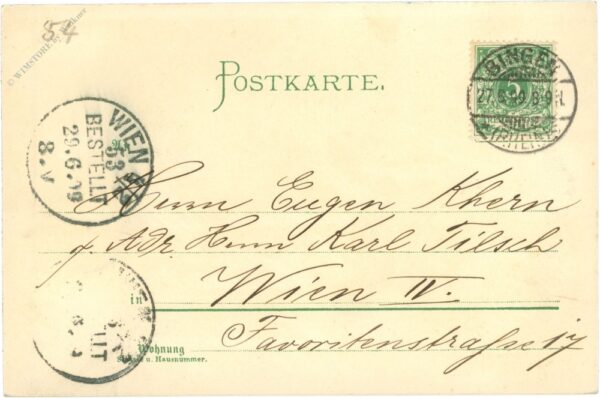 54
© WIMSTORE
POSTKARTE.
BINGEN
5
WIEN
53
BESTELLT
29.6.99
8.V
Herrn Eugen Khern
p. Adr. Herrn Karl Tilsch
in Wien IV.
Favoritenstraße 17
Wohnung
Straße u. Hausnummer.